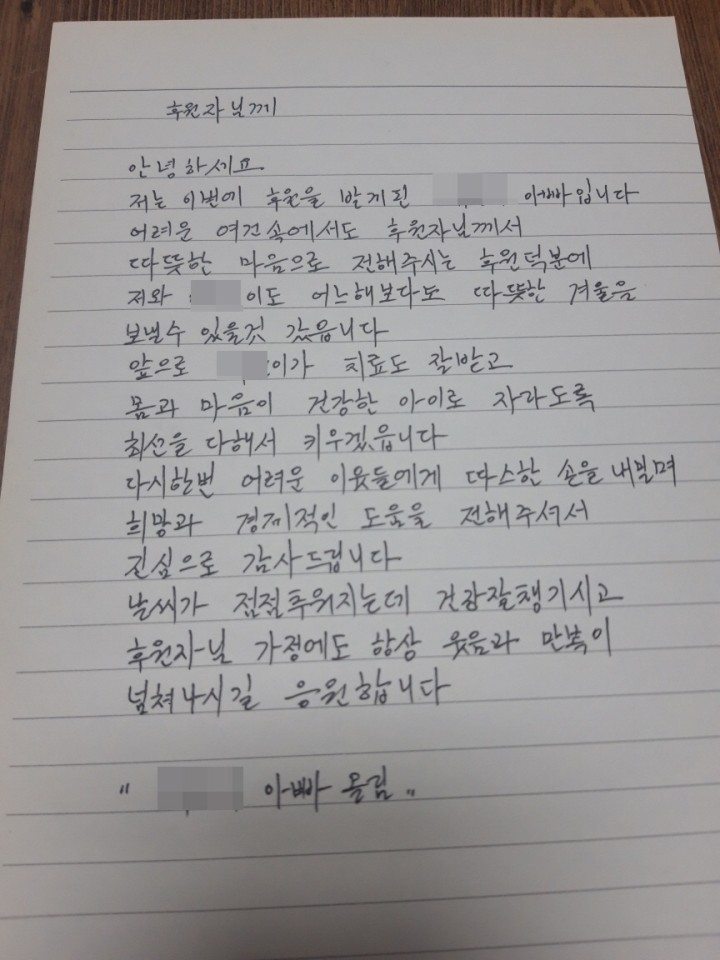 후원자님께
안녕하세요
저는 이번에 후원을 받게된 아빠입니다
어려운 여건속에서도 후원자님께서
따뜻한 마음으로 전해주시는 후원덕분에
저와 이도 어느해보다도 따뜻한 겨울을
보낼수 있을것 같읍니다
앞으로 이가 치료도 잘받고
몸과 마음이 건강한 아이로 자라도록
최선을 다해서 키우겠읍니다
다시한번 어려운 이웃들에게 따스한 손을 내밀며
희망과 경제적인 도움을 전해주셔서
진심으로 감사드립니다
날씨가 점점추워지는데 건강잘챙기시고
후원자님 가정에도 항상 웃음과 만복이
넘쳐나시길 응원합니다
" 아빠 올림 "